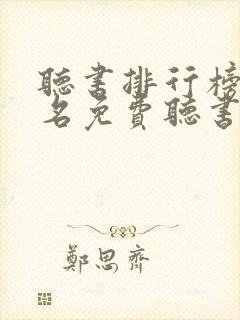 聽書排行榜
名免費聽書
鄭思齊